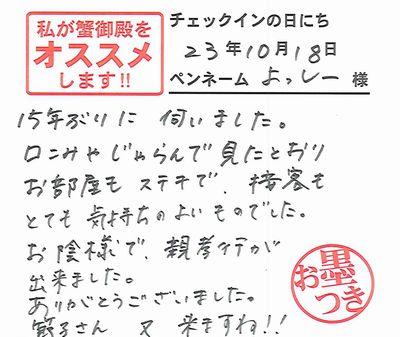 私が蟹御殿を
オススメ
します!!
チェックインの日にち
23年10月18日
ペンネーム よっしー 様
15年ぶりに 伺いました。
口こみやじゃらんで見たとおり
お部屋も ステキで、接客も
とても 気持ちのよいものでした。
お陰様で、親孝行が
出来ました。
ありがとうございました。
節子さん 又 来ますね!!
お墨つき